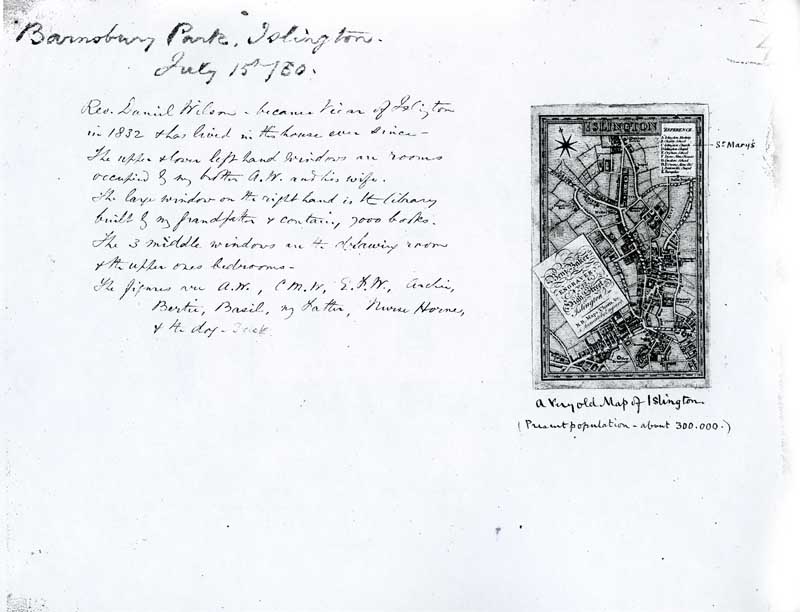 Barnsbury Park, Islington.
July 15th /80.
Rev. Daniel Wilson - became Vicar of Islington
in 1832 & has lived in this house ever since -
The upper & lower left hand windows are rooms
occupied by my brother A.W. and his wife.
The large window on the right hand is the library
built by my grandfather & containg 7000 books.
The 3 middle windows are the drawing room
& the upper ones bedrooms -
The figures are A.W., C.M.W, E.F.W, Archie,
Bertie, Basil, my Father, Nurse Horner,
& the dog - Jack
ISLINGTON
REFERENCE
St Mary's
ENGRAVER
High Street
Islington
A Very old Map of Islington
(Present population - about 300.000.)